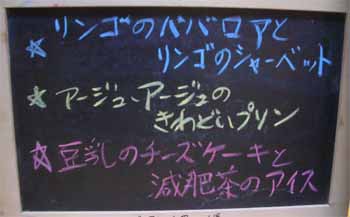 ☆リンゴのババロアと
リンゴのシャーベット
☆アージュ・アージュの
きわどいプリン
☆豆乳のチーズケーキと
減肥茶のアイス